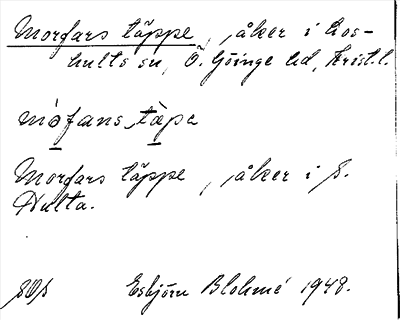 Morfars täppe, åker i Los-
hults sn, Ö. Göinge hd, Krist.l.
mo̱fans ta̱pa
Morfars täppe, åker i S.
Hulta.
Esbjörn Blohmé 1948.